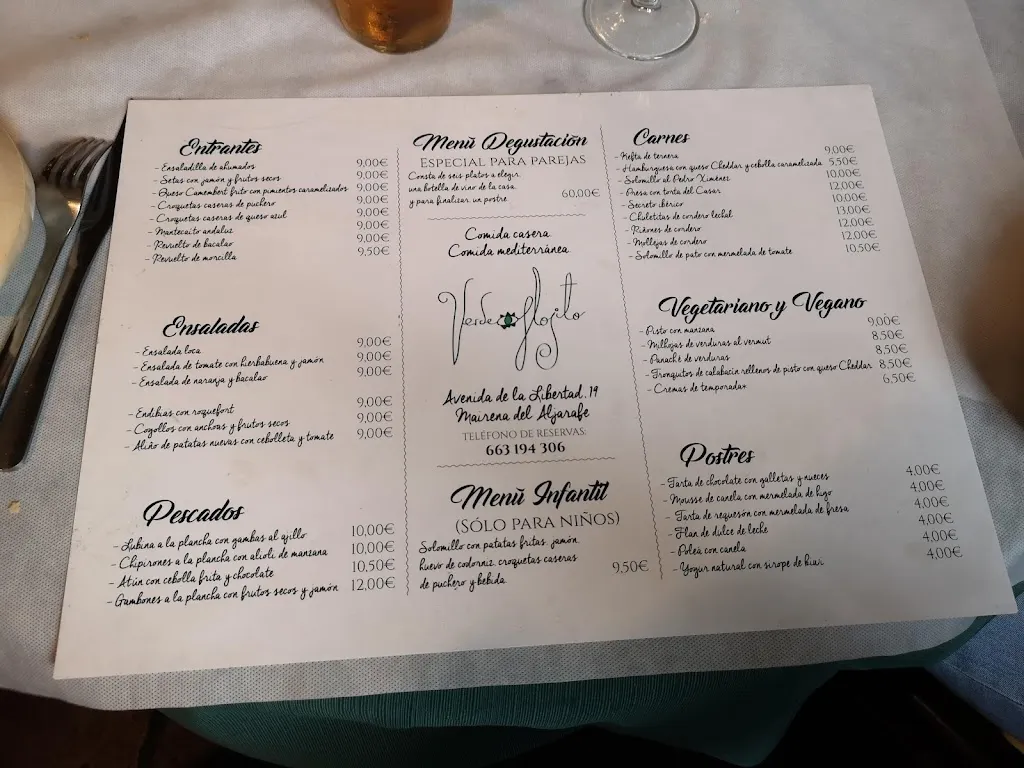 Entrantes
- Ensaladilla de ahumados 9,00€
- Setas con jamón y frutos secos 9,00€
- Queso Camembert frito con pimientos caramelizados 9,00€
- Croquetas caseras de puchero 9,00€
- Croquetas caseras de queso azul 9,00€
- Mantecaito andaluz 9,00€
- Revuelto de bacalao 9,00€
- Revuelto de morcilla 9,50€
Ensaladas
- Ensalada loca 9,00€
- Ensalada de tomate con hierbabuena y jamón 9,00€
- Ensalada de naranja y bacalao 9,00€
- Endibias con roquefort 9,00€
- Cogollos con anchoas y frutos secos 9,00€
- Aliño de patatas nuevas con cebolleta y tomate 9,00€
Pescados
- Lubina a la plancha con gambas al ajillo 10,00€
- Chipirones a la plancha con alioli de manzana 10,00€
- Atún con cebolla frita y chocolate 10,50€
- Gambones a la plancha con frutos secos y jamón 12,00€
Menú Degustación
ESPECIAL PARA PAREJAS
Consta de seis platos a elegir,
una botella de vino de la casa
y para finalizar un postre 60,00€
Comida casera
Comida mediterránea
Verde Flojito
Avenida de la Libertad, 19
Mairena del Aljarafe
TELÉFONO DE RESERVAS:
663 194 306
Menú Infantil
(SÓLO PARA NIÑOS)
Solomillo con patatas fritas, jamón,
huevo de codorniz, croquetas caseras
de puchero y bebida 9,50€
Carnes
- Kefta de ternera 9,00€
- Hamburguesa con queso Cheddar y cebolla caramelizada 5,50€
- Solomillo al Pedro Ximénez 10,00€
- Presa con torta del Casar 12,00€
- Secreto ibérico 10,00€
- Chuletitas de cordero lechal 13,00€
- Riñones de cordero 12,00€
- Mollejas de cordero 12,00€
- Solomillo de pato con mermelada de tomate 10,50€
Vegetariano y Vegano
- Pisto con manzana 9,00€
- Milhojas de verduras al vermut 8,50€
- Panaché de verduras 8,50€
- Tronquitos de calabacín rellenos de pisto con queso Cheddar 8,50€
- Cremas de temporada* 6,50€
Postres
- Tarta de chocolate con galletas y nueces 4,00€
- Mousse de canela con mermelada de higo 4,00€
- Tarta de requesón con mermelada de fresa 4,00€
- Flan de dulce de leche 4,00€
- Poleá con canela 4,00€
- Yogur natural con sirope de kiwi 4,00€